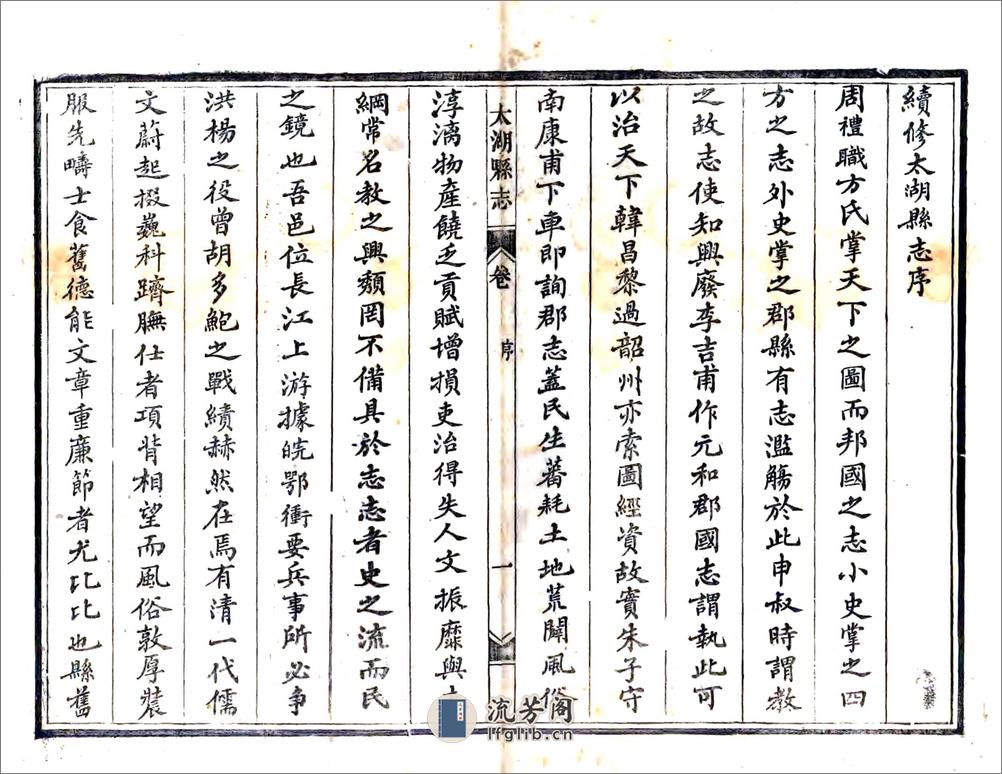 續修太湖縣志序
周禮職方氏掌天下之圖而邦國之志小史掌之四
方之志外史掌之郡縣有志濫觴於此申叔時謂教
之故志使知興廢李吉甫作元和郡國志謂執此可
以治天下韓昌黎過韶州亦索圖經資故實朱子守
南康甫下車即詢郡志蓋民生蕃耗土地荒闢風俗
太湖縣志
卷
序
一
淳漓物產饒乏貢賦增損吏治得失人文振靡與
綱常名教之興頹罔不備具於志志者史之流而民
之鏡也吾邑位長江上游據皖鄂衝要兵事所必争
洪楊之役曾胡多鮑之戰績赫然在焉有清一代儒
文蔚起掇巍科躋膴仕者項背相望而風俗敦厚裝
服先疇士食舊德能文章重廉節者尤比比也縣舊
流芳阁
lfglib.cn